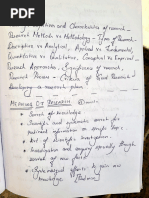 and Characteristics of research -
Research Methods vs Methodology - Types of Research -
Descriptive vs Analytical, Applied vs Fundamental,
Quantitative vs Qualitative, Conceptual vs Empirical -
Research Approaches - Significance of research -
Research Process - Criteria of Good Research -
Developing a research plan.
MEANING OF RESEARCH:
Search for knowledge
Scientific and systematic search for
on a specific
topic.
Art of scientific investigation
Investigation
search of new facts
Systematized effort to gain new
knowledge.